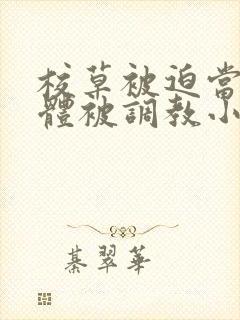 校草被迫當
體被調教小
綦翠華